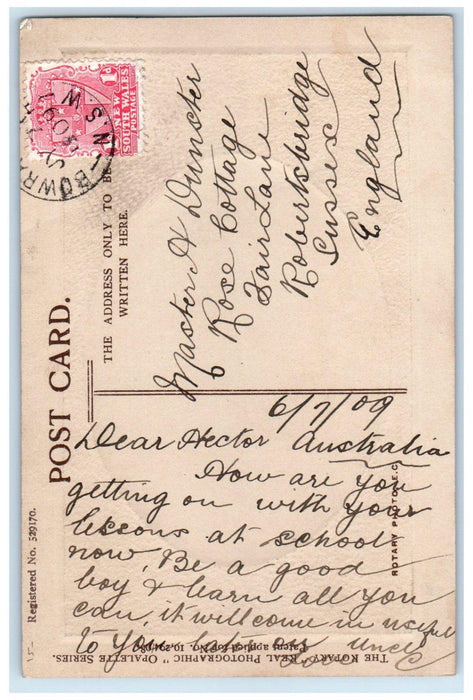 NEW
SOUTH WALES
POSTAGE
1D
BOWRA
N.S.W
POST CARD.
THE ADDRESS ONLY TO BE
WRITTEN HERE.
Master H Dunster
Rose Cottage
Fair Lane
Robertsbridge
Sussex
England
6/7/09
Australia
Dear Hector
How are you
getting on with your
lessons at school
now, Be a good
boy & learn all you
can, it will come in useful
to you later on
Registered No. 529170.
ROTARY PHOTO. E.C.
THE ROTARY "REAL PHOTOGRAPHIC" OPALETTE SERIES.